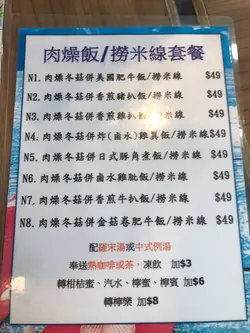 肉燥飯/撈米線套餐
N1. 肉燥冬菇併美國肥牛飯/撈米線 $49
N2. 肉燥冬菇併香煎豬扒飯/撈米線 $49
N3. 肉燥冬菇併香煎雞扒飯/撈米線 $49
N4. 肉燥冬菇併炸(鹵水)雞翼飯/撈米線 $49
N5. 肉燥冬菇併日式豚角煮飯/撈米線 $49
N6. 肉燥冬菇併鹵水雞肶飯/撈米線 $49
N7. 肉燥冬菇併香煎牛扒飯/撈米線 $49
N8. 肉燥冬菇併金菇卷肥牛飯/撈米線 $49
配羅宋湯或中式例湯
奉送熱咖啡或茶，凍飲 加$3
轉柑桔蜜、汽水、檸蜜、檸賓 加$6
轉檸樂 加$8